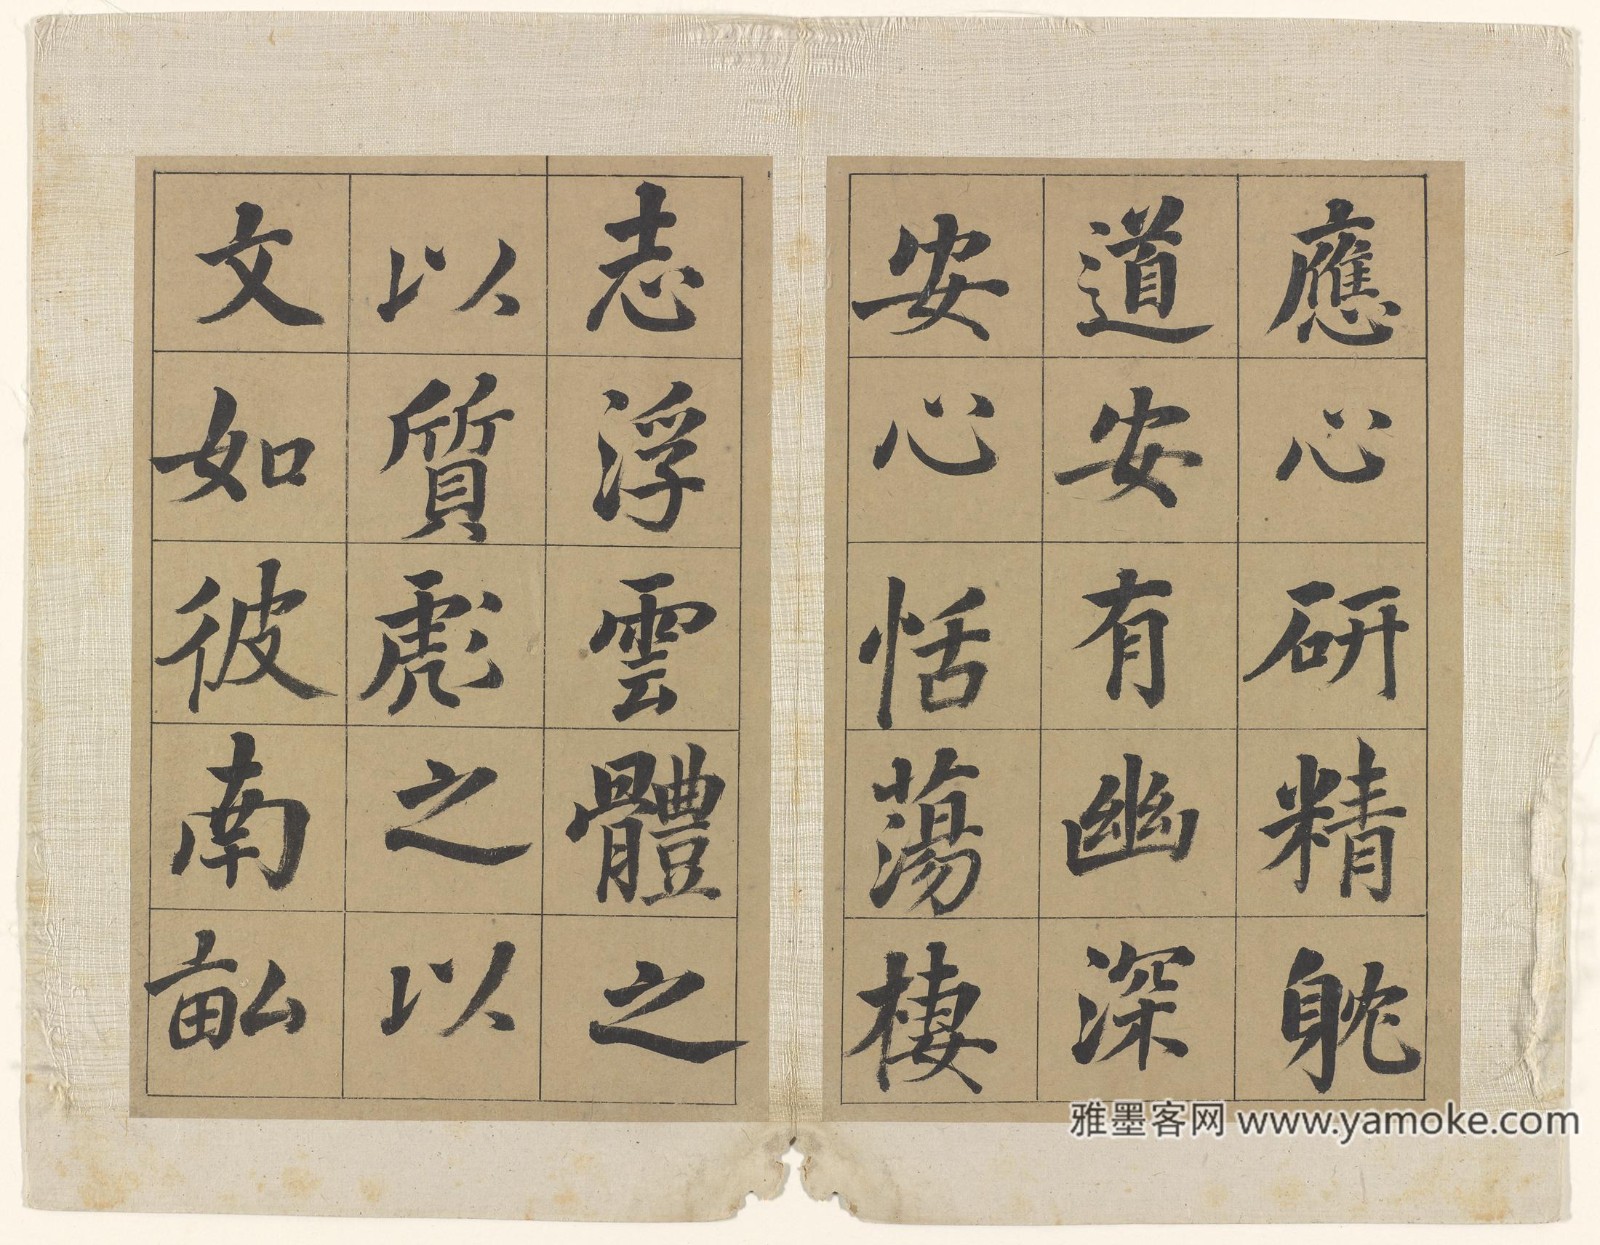 應心研精躭
道安有幽深
安心恬蕩棲
志浮雲體之
以質彪之以
文如彼南畝
雅墨客网 www.yamoke.com